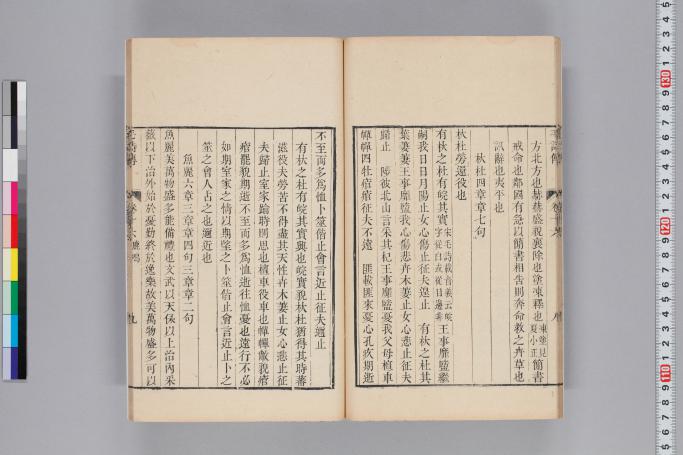 方北方也赫赫盛貌襄除也塗凍釋也凍塗見夏小正簡書
戒命也鄰國有急以簡書相告則奔命救之卉草也
訊辭也夷平也
杕杜四章章七句
杕杜勞還役也
有杕之杜有睆其實宋毛詩載音義云睆字從白或從目邊非王事靡盬繼
嗣我日日月陽止女心傷止征夫遑止　有杕之杜其
葉萋萋王事靡盬我心傷悲卉木萋止女心悲止征夫
歸止　陟彼北山言采其杞王事靡盬憂我父母檀車
幝幝四牡痯痯征夫不遠　匪載匪來憂心孔疚期逝
不至而多為恤卜筮偕止會言近止征夫邇止
有杕之杜有睆其實興也睆實貌杕杜猶得其時蕃
滋役夫勞苦不得盡其天性卉木萋止女心悲止征
夫歸止室家踰時則思也檀車役車也幝幝敝貌痯
痯罷貌期逝不至而多為恤逝往恤憂也遠行不必
如期室家之情以期望之卜筮偕止會言近止卜之
筮之會人占之也邇近也
魚麗六章三章章四句三章章二句
魚麗美萬物盛多能備禮也文武以天保以上治內采
薇以下治外始於憂勤終於逸樂故美萬物盛多可以
鹿鳴
九
130
120
110